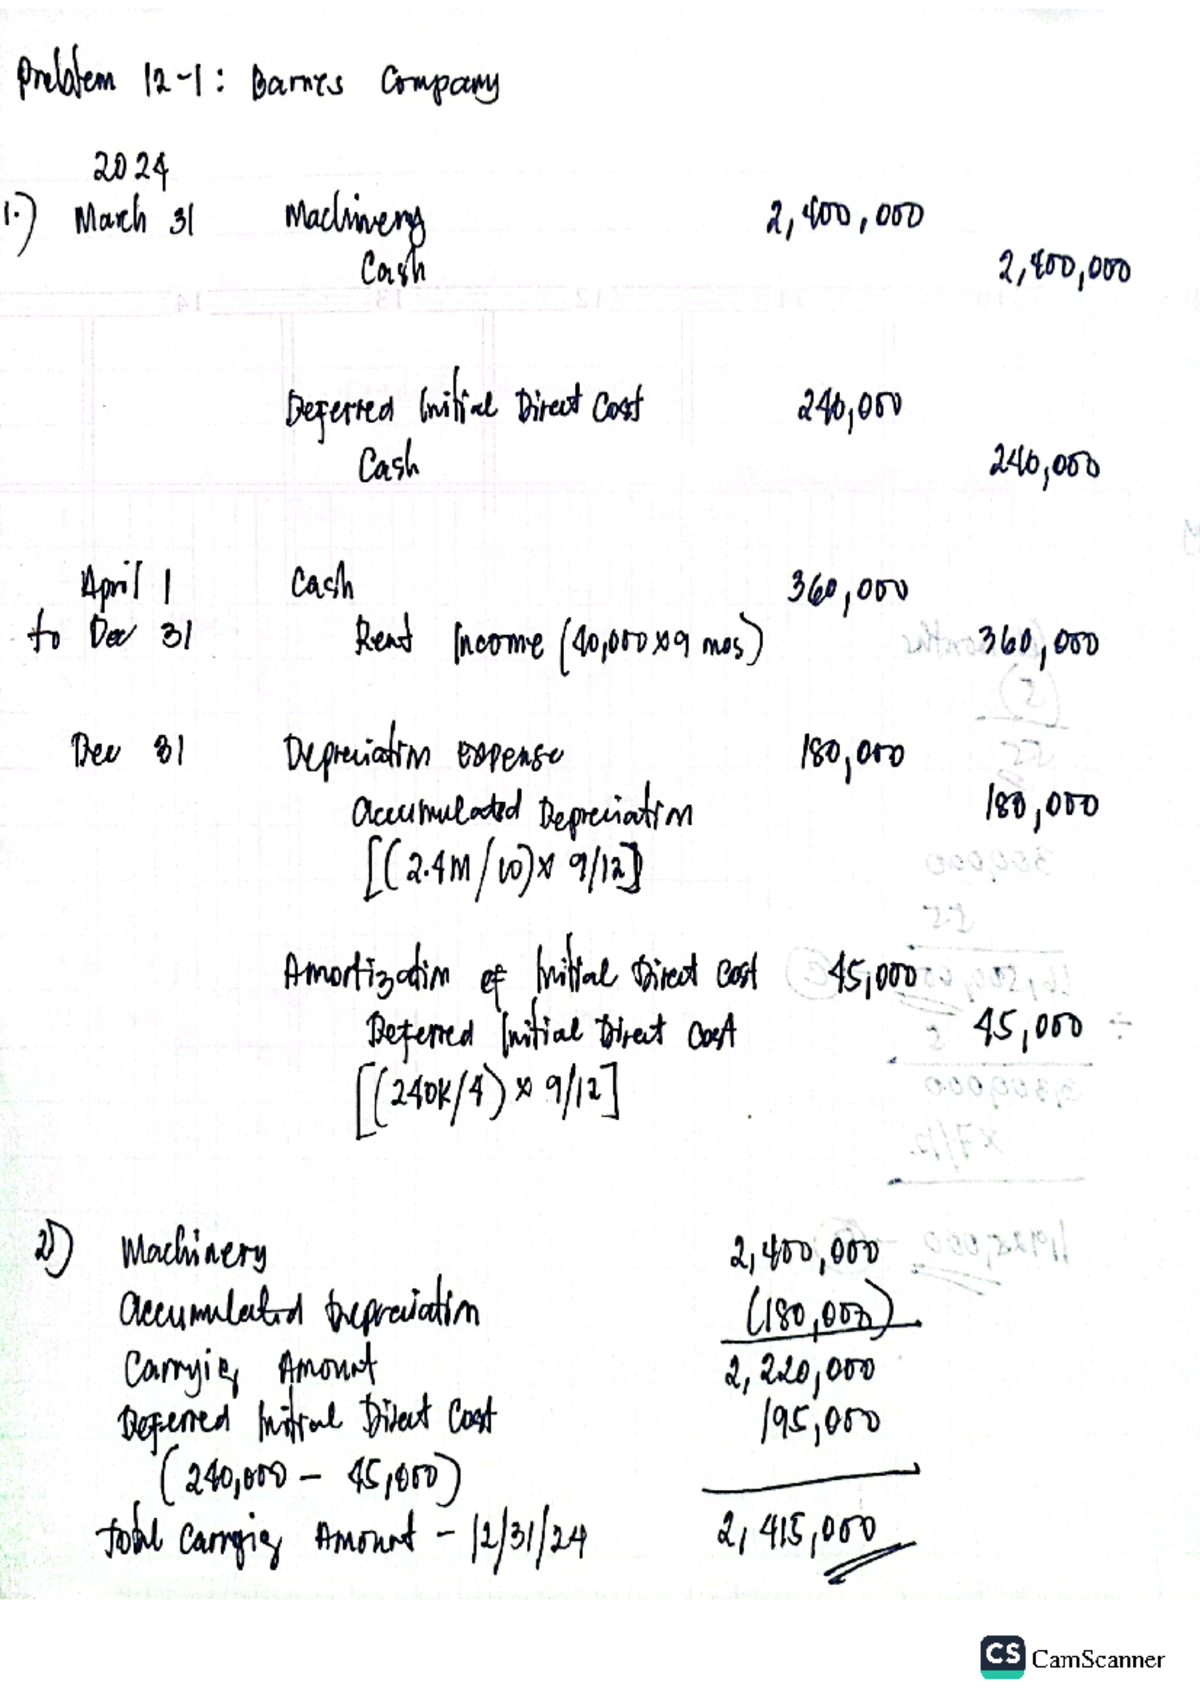 Problem 12-1: Barnes Company
2024
1.) March 31 Machinery 2,400,000
Cash 2,400,000
Deferred Initial Direct Cost 240,000
Cash 240,000
April 1 Cash 360,000
to Dec 31 Rent Income (40,000 x 9 mos) 360,000
Dec 31 Depreciation Expense 180,000
Accumulated Depreciation 180,000
[(2.4M/10) x 9/12]
Amortization of Initial Direct Cost 45,000
Deferred Initial Direct Cost 45,000
[(240K/4) x 9/12]
2) Machinery 2,400,000
Accumulated Depreciation (180,000)
Carrying Amount 2,220,000
Deferred Initial Direct Cost 195,000
(240,000 - 45,000)
Total Carrying Amount - 12/31/24 2,415,000
CS CamScanner